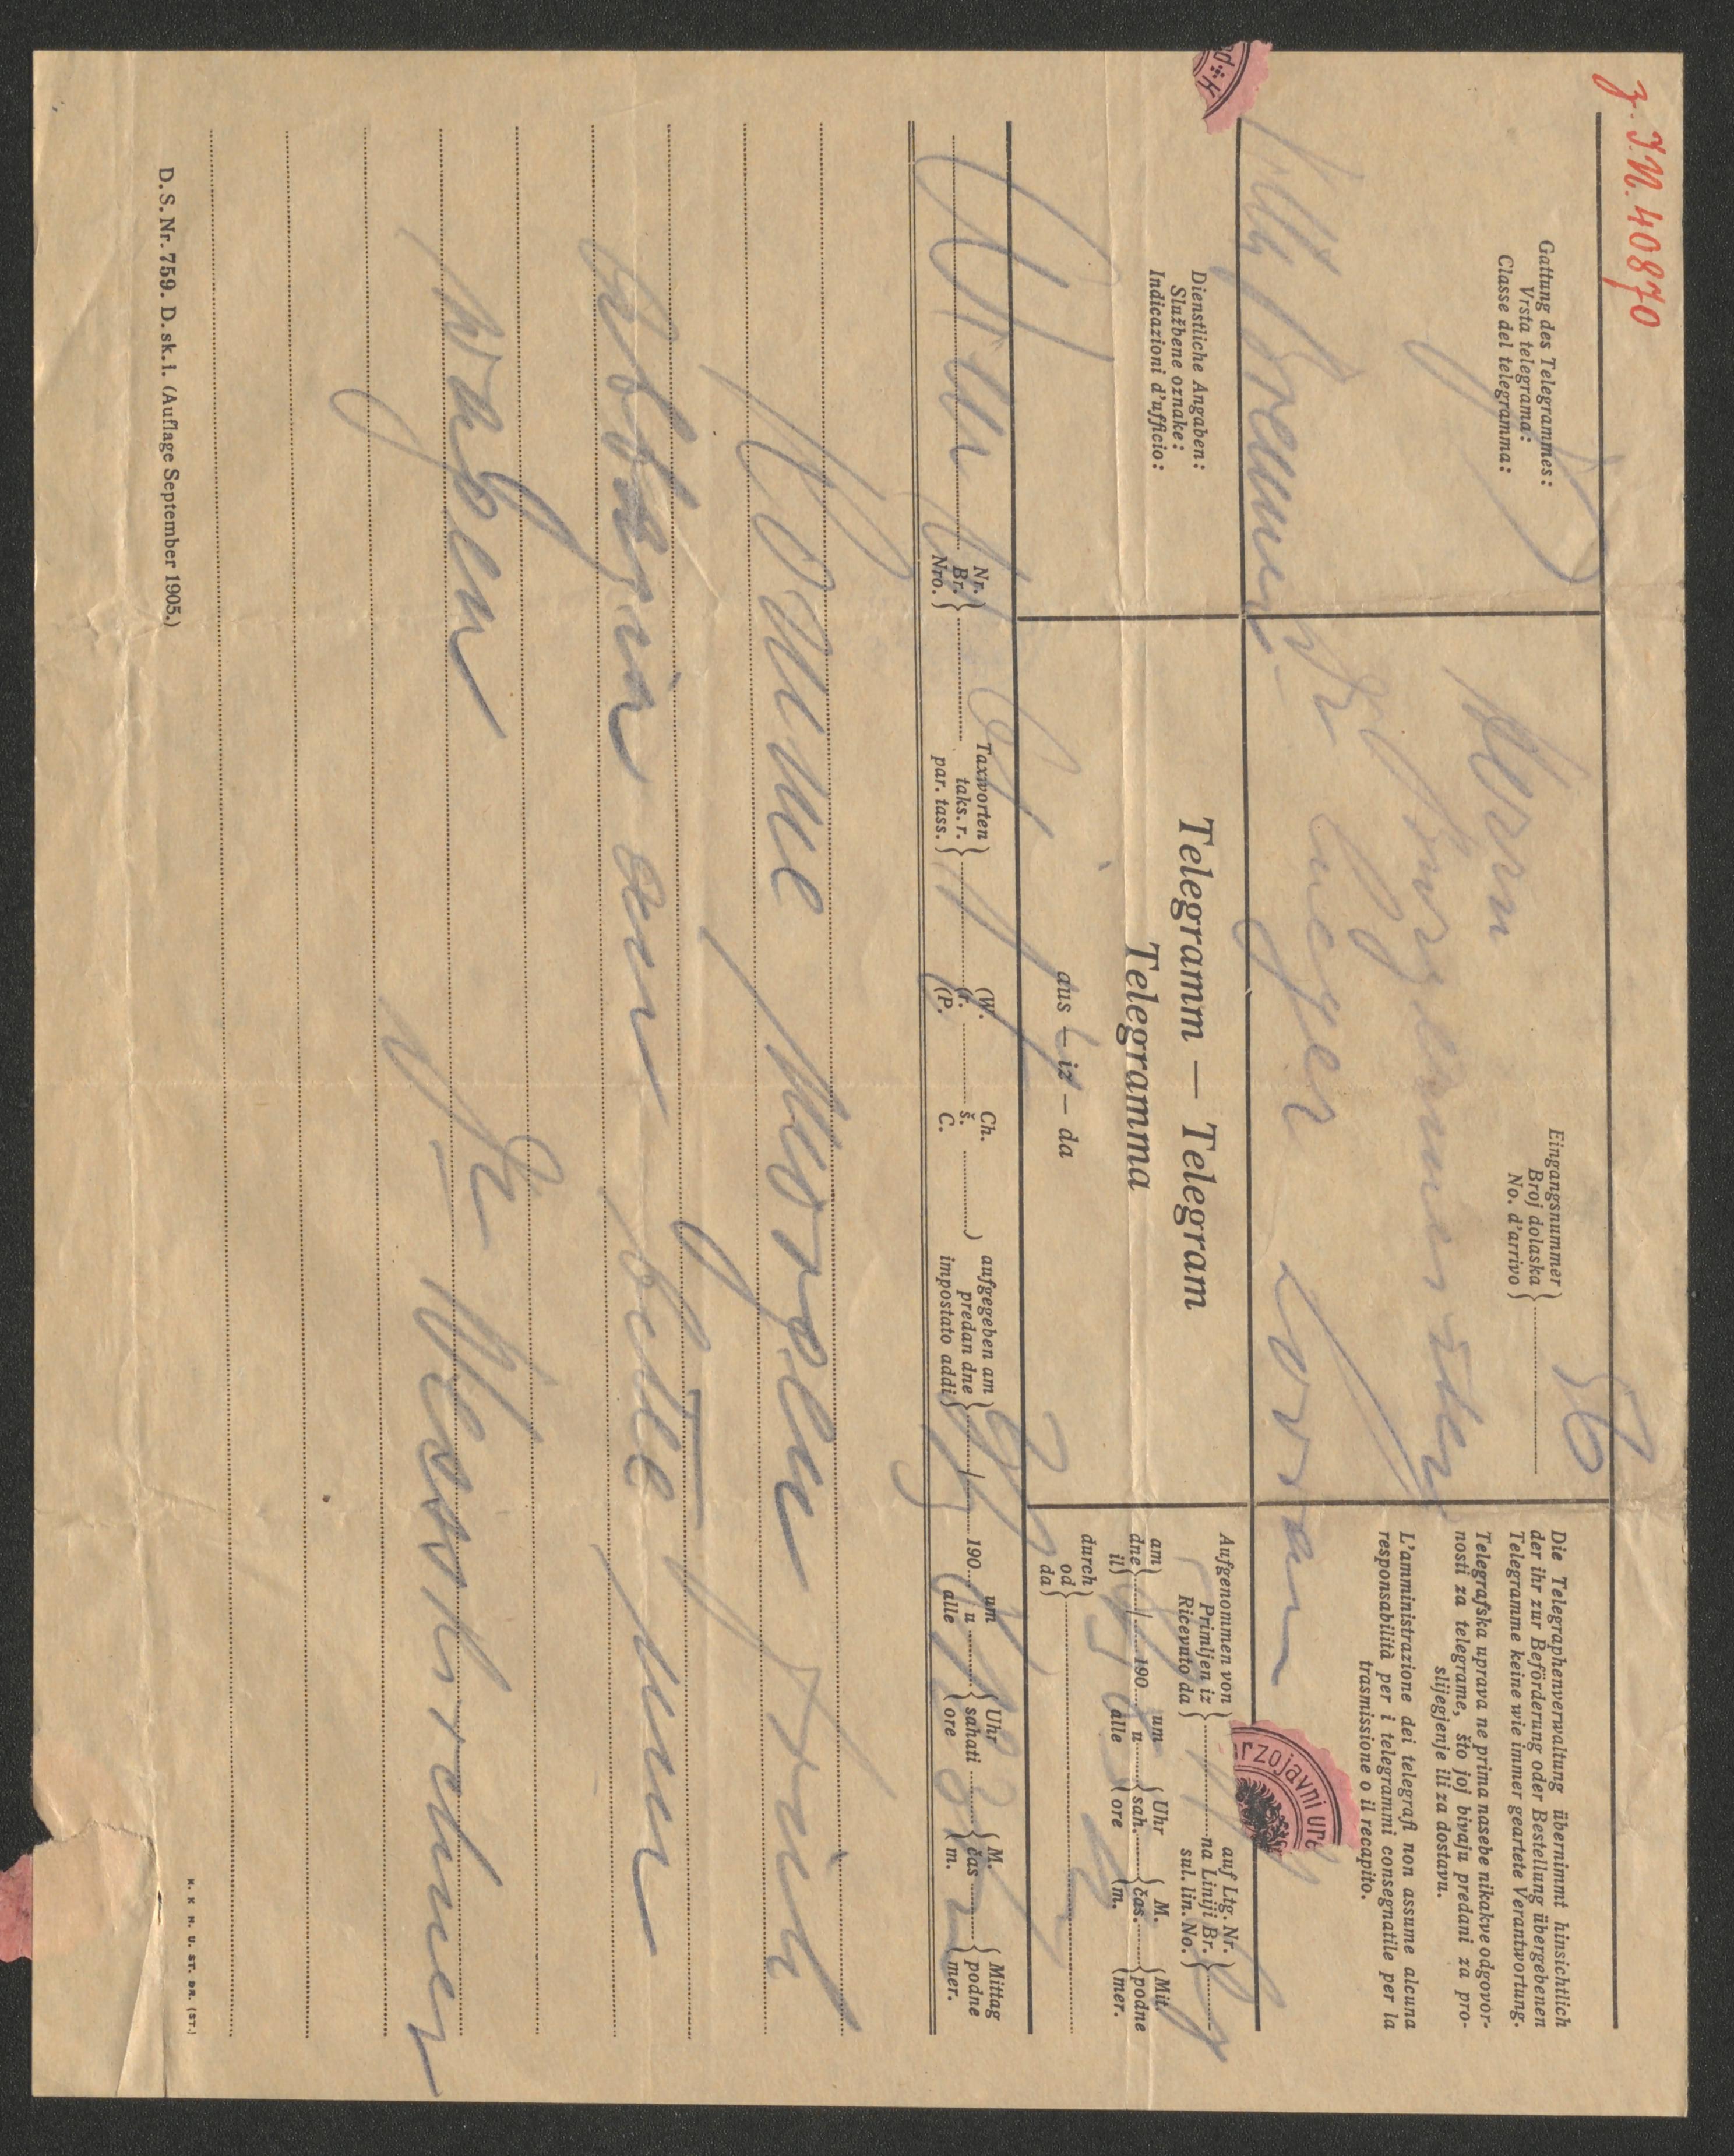 z. I.N. 40870
Gattung des Telegrammes:
Vrsta telegrama:
Classe del telegramma:
Eingangsnummer
Broj dolaska
No. d'arrivo
56
Herrn
Bürgermeister
Dr Lueger
Lovran
Die Telegraphenverwaltung übernimmt hinsichtlich
der ihr zur Beförderung oder Bestellung übergebenen
Telegramme keine wie immer geartete Verantwortung.
Telegrafska uprava ne prima nasebe nikakve odgovor-
nosti za telegrame, što joj bivaju predani za pro-
slijegjenje ili za dostavu.
L'amministrazione dei telegrafi non assume alcuna
responsabilità per i telegrammi consegnatile per la
trasmissione o il recapito.
rzojavni ure
Dienstliche Angaben:
Službene oznake:
Indicazioni d'ufficio:
Telegramm — Telegram
Telegramma
aus — iz — da
Aufgenommen von
Primljen iz
Ricevuto da
auf Ltg. Nr.
na Liniji Br.
sul. lin. No.
am
dne
il
190
um
u
alle
Uhr
sah.
ore
M.
čas.
m.
Mit.
podne
mer.
durch
od
da
Wien
Nr.
Br.
Nro.
Taxworten
taks. r.
par. tass.
(W.
(r.
(P.
Ch.
š.
C.
)
aufgegeben am
predan dne
impostato addi
190
um
u
alle
Uhr
sahati
ore
M.
čas
m.
Mittag
podne
mer.
Komme Morgen früh
Abbazia an bitte um
Wagen
Dr Weisskirchner
D. S. Nr. 759. D. sk. i. (Auflage September 1905.)
K. K. H. U. ST. DR. (ST.)